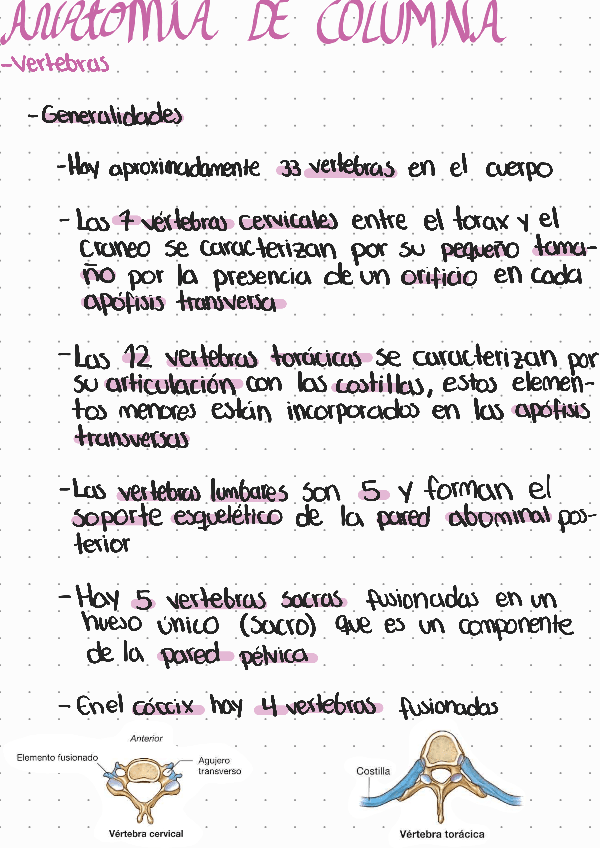 ANATOMIA DE COLUMNA
-Vertebras
-Generalidades
-Hay aproximadamente 33 vertebras en el cuerpo
-Las 7 vértebras cervicales entre el torax y el
craneo se caracterizan por su pequeño tama-
ño por la presencia de un orificio en cada
apófisis transversa
-Las 12 vertebras torácicas se caracterizan por
su articulación con las costillas, estos elemen-
tos menores están incorporados en las apófisis
transversas
-Las vertebras lumbares son 5 y forman el
soporte esquelético de la pared abdominal pos-
terior
-Hay 5 vertebras sacras fusionadas en un
hueso único (sacro) que es un componente
de la pared pélvica
-En el cóccix hay 4 vertebras fusionadas
Anterior
Elemento fusionado
Agujero
transverso
Vértebra cervical
Costilla
Vértebra torácica